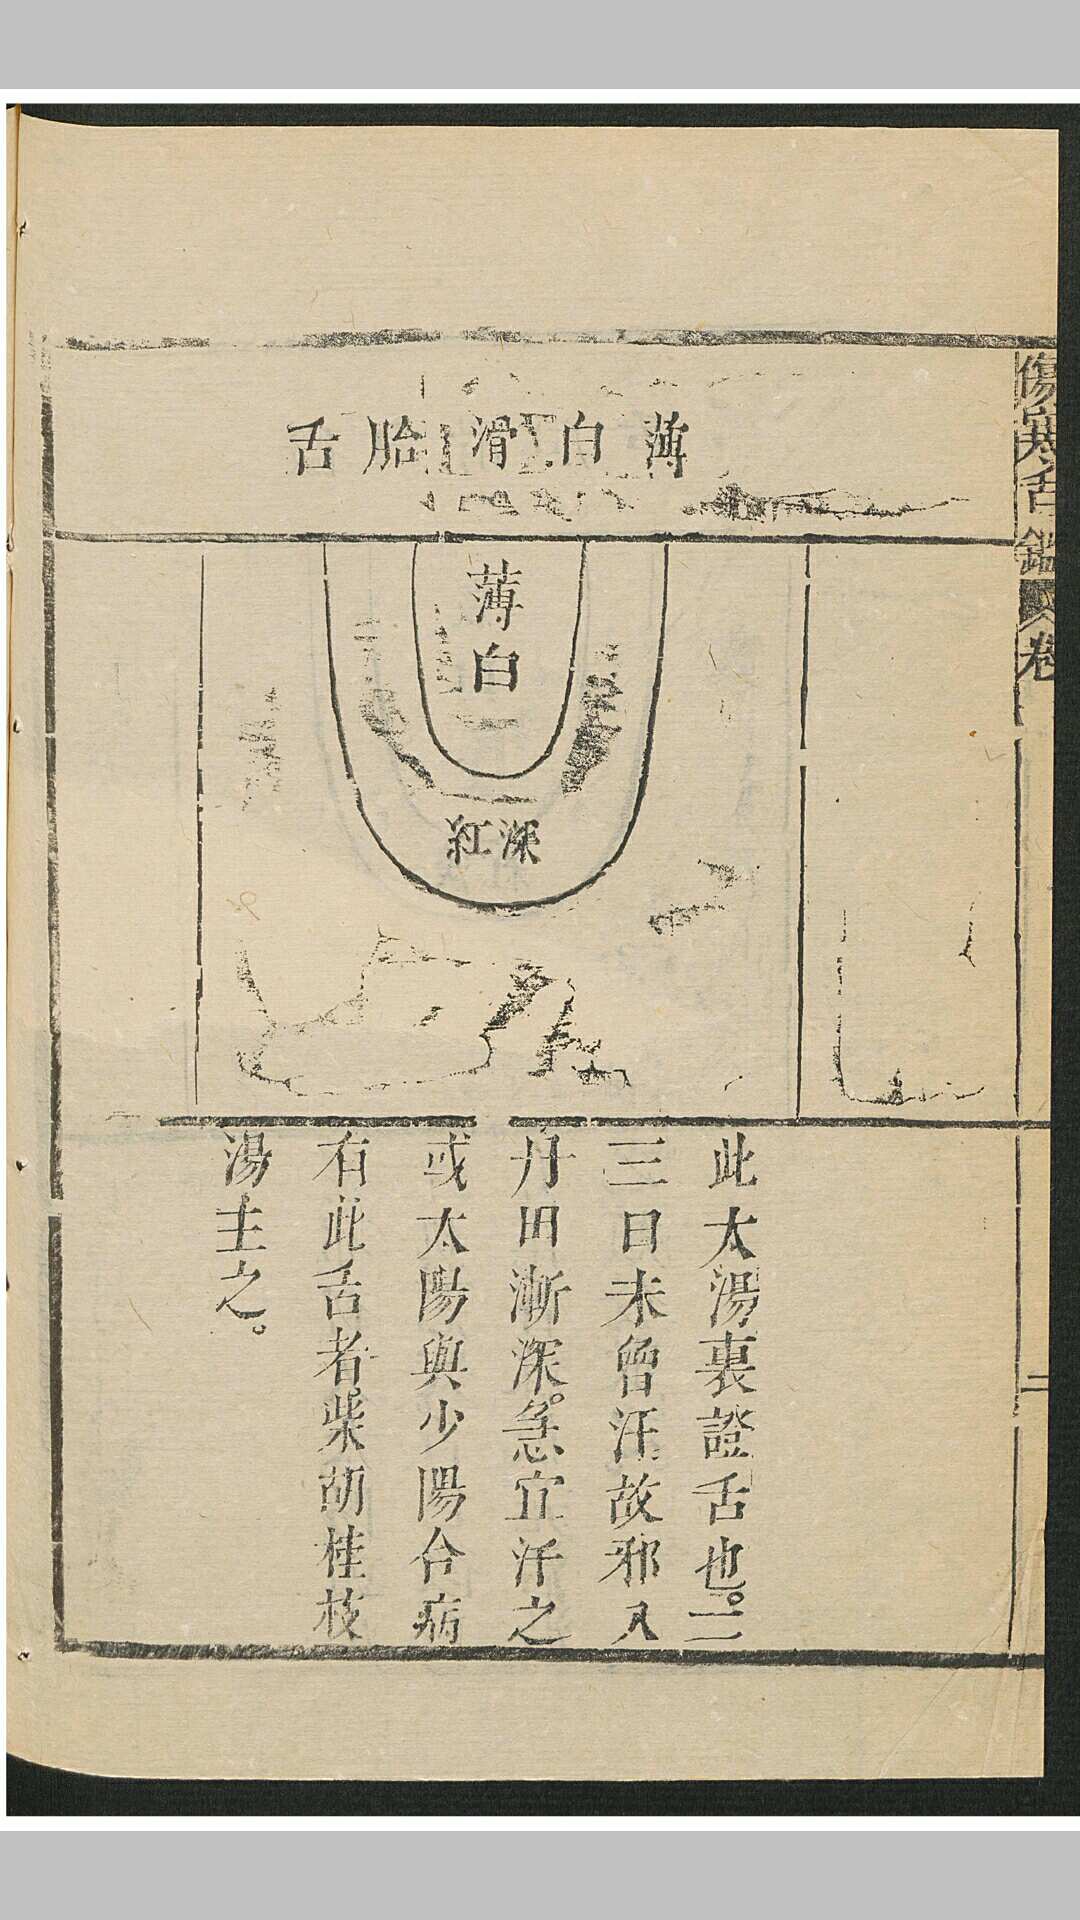 傷寒舌鑑 卷
薄白滑胎舌
薄白
深紅
此太湯裏證舌也。二
三日未曾汗故邪入
丹田漸深。急宜汗之
或太陽與少陽合病
有此舌者。柴胡桂枝
湯主之。
二